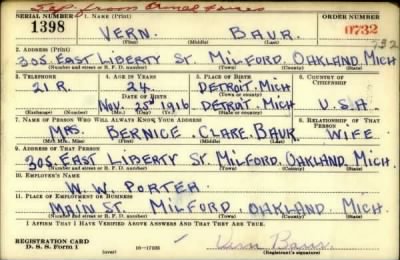 Def. from Armed Forces
SERIAL NUMBER 1. NAME (Print) ORDER NUMBER
1398 VERN. BAUR. 0732
(First) (Middle) (Last) 732
2. ADDRESS (Print)
305. EAST LIBERTY ST. MILFORD. OAKLAND. MICH
(Number and street or R. F. D. number) (Town) (County) (State)
3. TELEPHONE 4. AGE IN YEARS 5. PLACE OF BIRTH 6. COUNTRY OF CITIZENSHIP
21 R. 24 DETROIT. MICH
DATE OF BIRTH (Town or county)
NOV. 23D 1916. DETROIT. MICH U.S.A
(Exchange) (Number) (Mo.) (Day) (Yr.) (State or country)
7. NAME OF PERSON WHO WILL ALWAYS KNOW YOUR ADDRESS 8. RELATIONSHIP OF THAT PERSON
MRS. BERNICE. CLARE. BAUR WIFE.
(Mr., Mrs., Miss) (First) (Middle) (Last)
9. ADDRESS OF THAT PERSON
305. EAST LIBERTY ST. MILFORD. OAKLAND. MICH.
(Number and street or R. F. D. number) (Town) (County) (State)
10. EMPLOYER'S NAME
W. W. PORTER
11. PLACE OF EMPLOYMENT OR BUSINESS
MAIN ST. MILFORD OAKLAND MICH.
(Number and street or R. F. D. number) (Town) (County) (State)
I AFFIRM THAT I HAVE VERIFIED ABOVE ANSWERS AND THAT THEY ARE TRUE.
REGISTRATION CARD
D. S. S. Form 1 16—17105 Vern Baur
(Registrant's signature)